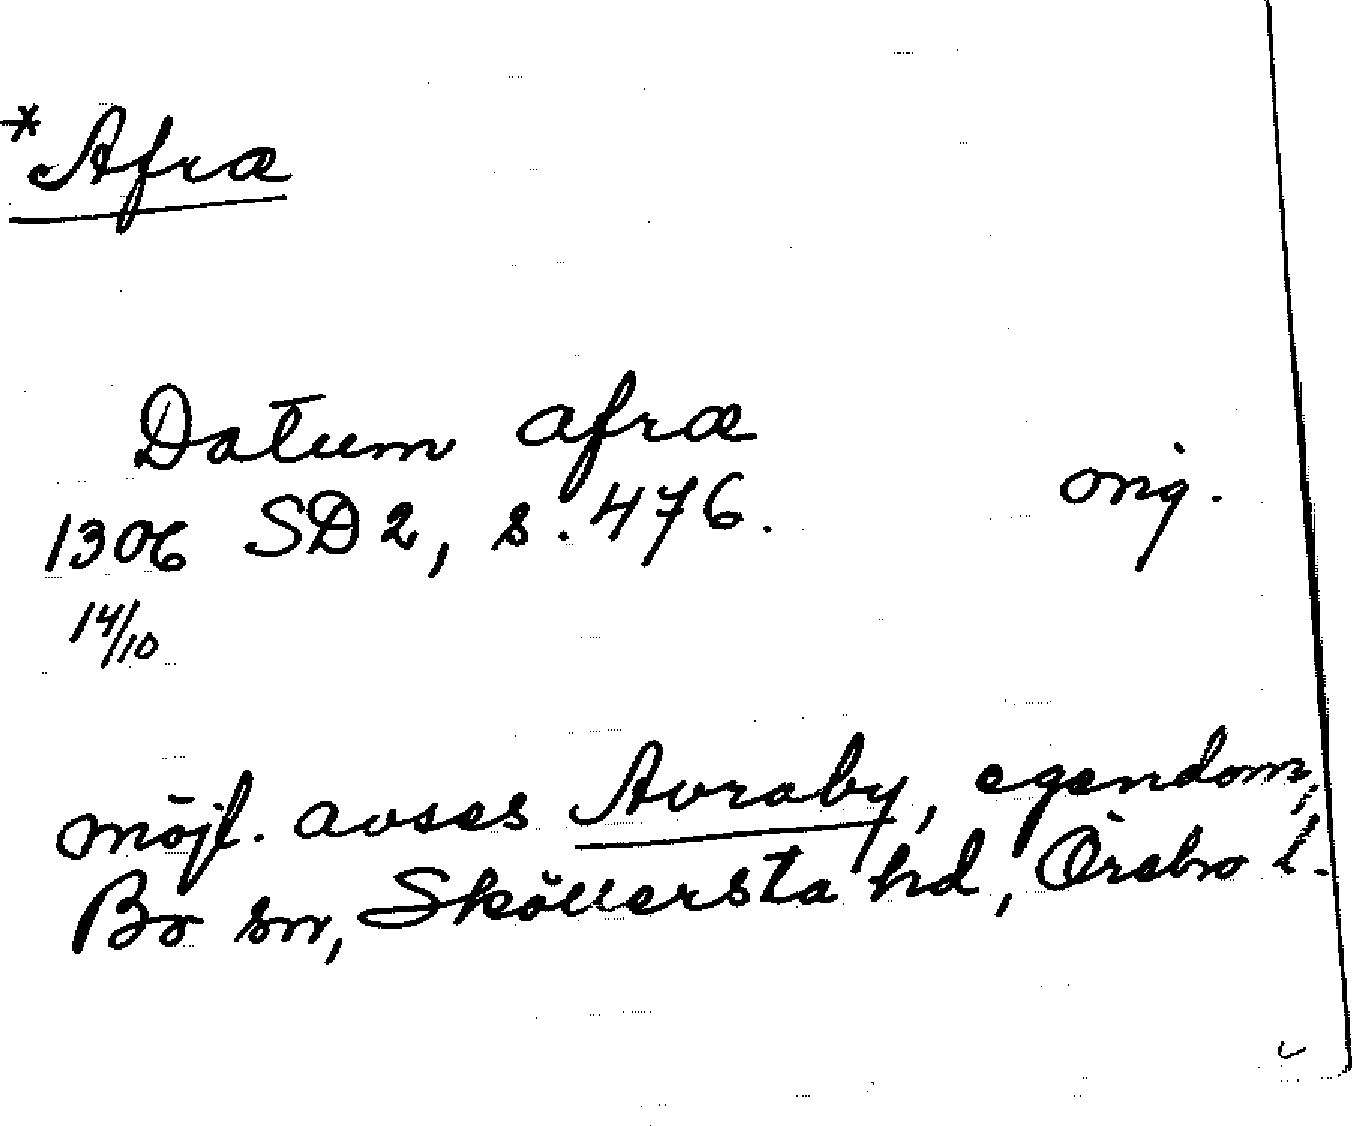 *Afræ
Datum afræ
orig.
1306 SD 2, s. 476.
14/10
möjl. avses Avraby, egendom,
Bo sn, Sköllersta hd, Örebro l.